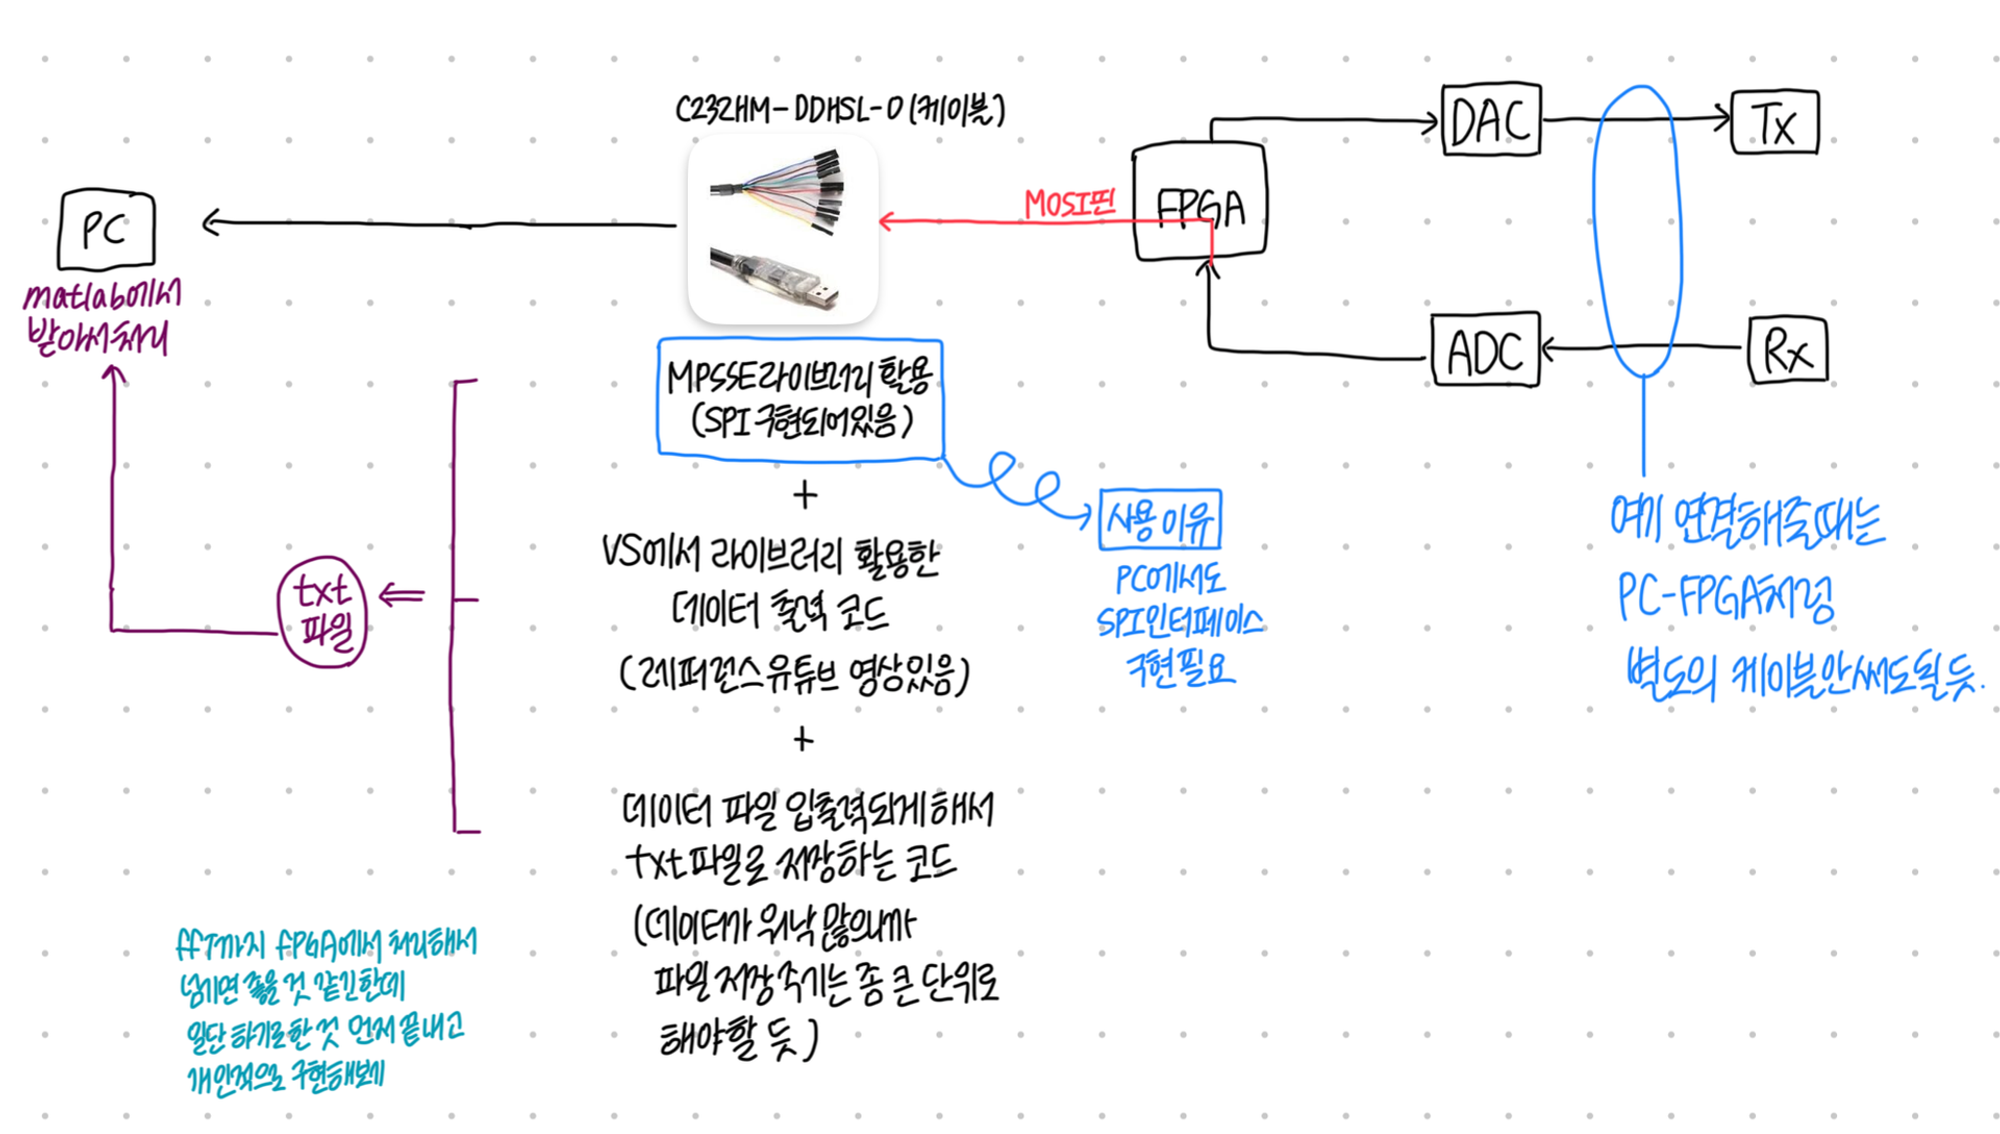 C232HM-DDHSL-0(케이블)
DAC
Tx
FPGA
MOSI핀
PC
matlab에서
받아서처리
ADC
Rx
MPSSE라이브러리 활용
(SPI 구현되어있음)
+
사용이유
PC에서도
SPI인터페이스
구현필요
여기 연결해줄때는
PC-FPGA처럼
별도의 케이블안써도될듯.
VS에서 라이브러리 활용한
데이터 출력 코드
(레퍼런스유튜브 영상있음)
+
txt
파일
데이터 파일 입출력되게해서
txt파일로 저장하는 코드
(데이터가 워낙 많으니까
파일 저장 주기는 좀 큰 단위로
해야할 듯)
ffT까지 FPGA에서 처리해서
넘기면 좋을 것 같긴한데
일단 하기로한 것 먼저 끝내고
개인적으로 구현해보게